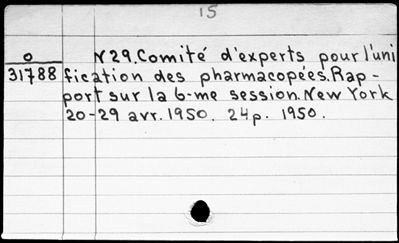 15
O
31788
N29. Comité d'experts pour l'uni
fication des pharmacopées. Rap-
port sur la 6-me session. New York
20-29 avr. 1950. 24 p. 1950.